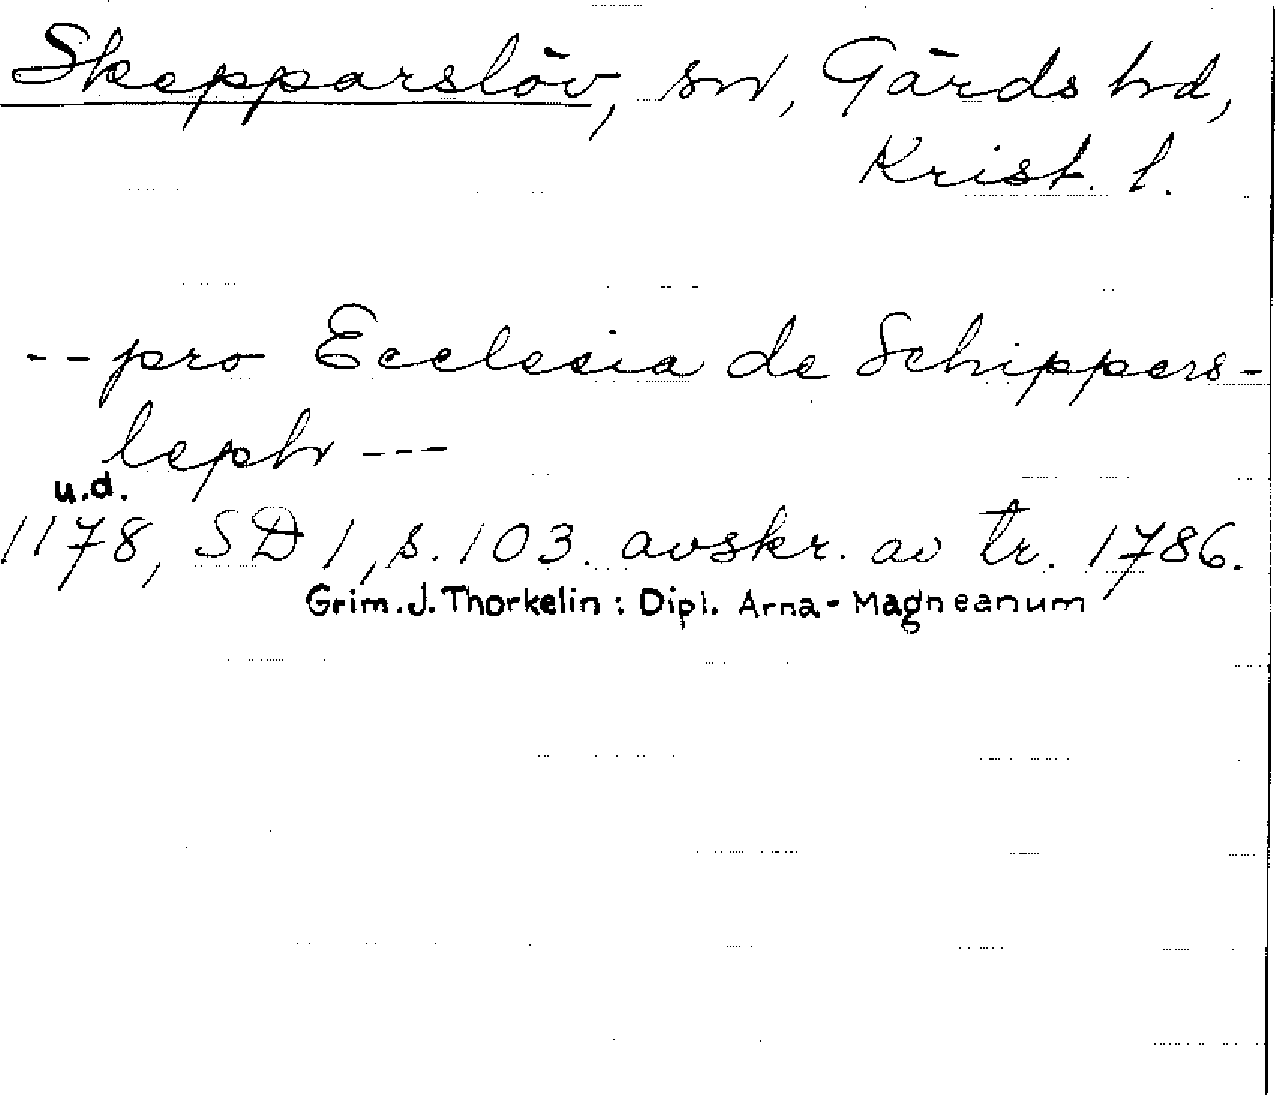 Skepparslöv, sn, Gärds hd,
Krist. l.
-- pro Ecclesia de Schippers-
leph ---
u.d.
1178, SD 1, s. 103. avskr. av tr. 1786.
Grim. J. Thorkelin : Dipl. Arna-Magneanum